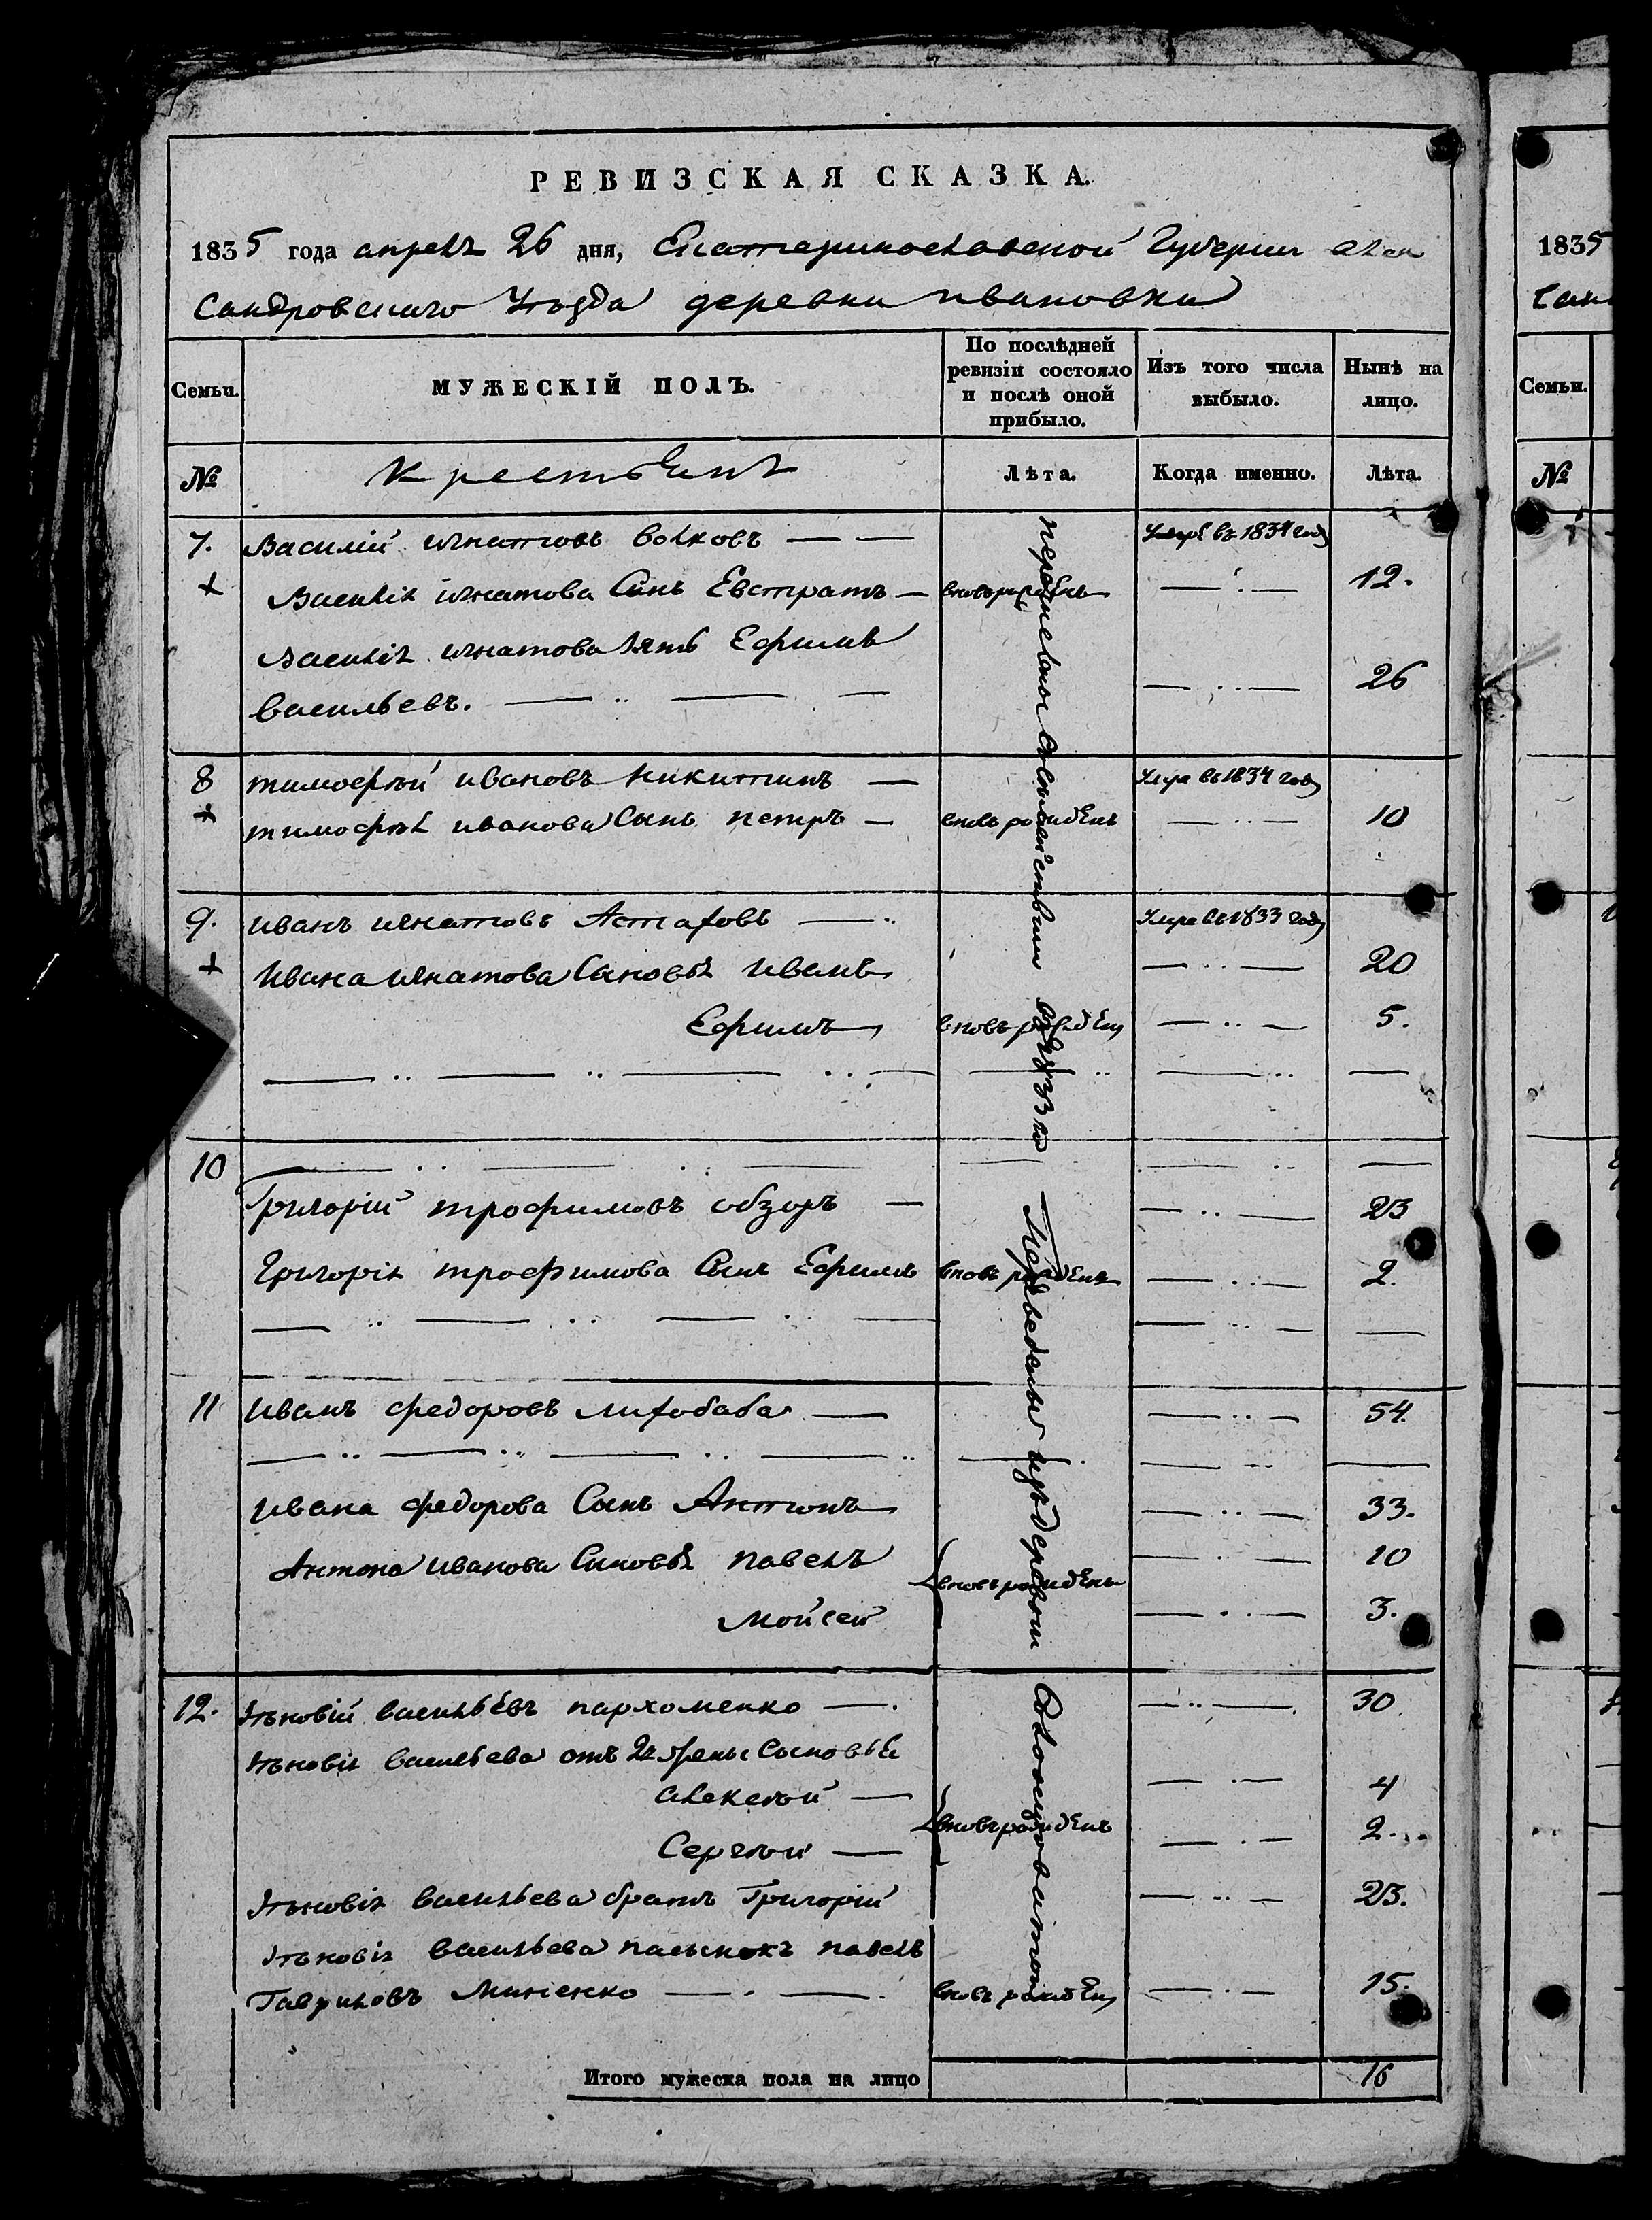 РЕВИЗСКАЯ СКАЗКА.
1835 года апрель 26 дня, Екатеринославской Губернии алек
сандровского Уѣзда деревни ивановки
Семьи.
МУЖЕСКІЙ ПОЛЪ.
По послѣдней ревизіи состояло и послѣ оной прибыло.
Изъ того числа выбыло.
Нынѣ на лицо.
№
Крестьянѣ
Лѣта.
Когда именно.
Лѣта.
7. Василій игнатовъ волковъ — — Умре въ 1834 году
+ Василія игнатова Сынъ Евстратъ — вновьрожденъ — 12.
Василія игнатова зять Ефимъ
васильевъ. — — — 26
8 тимофѣй ивановъ никитинъ — Умре въ 1834 году
+ тимофѣя иванова Сынъ петръ — вновь рожденъ — 10
9. иванъ игнатовъ Астаховъ — Умре въ 1833 году
+ Ивана игнатова Сыновья иванъ — 20
Ефимъ вновь рожден — 5.
10
Григорій трофимовъ обзоръ — — 23
Григорія трофимова Сынъ Ефимъ вновь рожденъ — 2.
11 иванъ федоровъ лихобаба — — 54.
ивана федорова Сынъ Антонъ — 33.
Антона иванова Сыновья павелъ — 10
вновьрожденъ
Мойсей — 3.
12. васильевъ пархоменко — — 30
васильева отъ 2й жены Сыновья
алексѣй — — 4
вновьрожденъ
Сергѣй — — 2.
васильева братъ Григорій — 23.
васильева пасынокъ павелъ
Гавриловъ Миненко — — вновь рожден — 15.
Итого мужеска пола на лицо 16
Переведены изъ деревни
1835
Семьи.
№